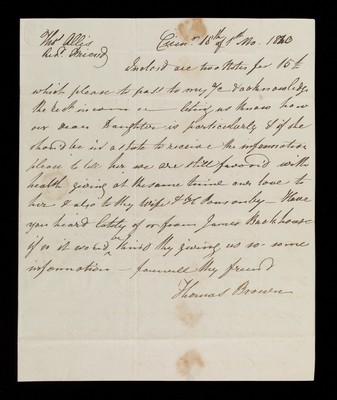 Thos Allis
Rest. Friend
Ciren 15th of 1st Mo. 1820
Inclosed are two Notes for 15£
which please to pass to my /c & acknowledge
the rect in course letting us know how
our dear Daughter is particularly & if she
should be in a state to receive the information
please to tell her we are still favord with
health giving at the same time our love to
her & also to thy Wife & Have
you heard lately of or from James Backhouse
if so it would be kind thy giving us some
information – farewell thy friend
Thomas Brown